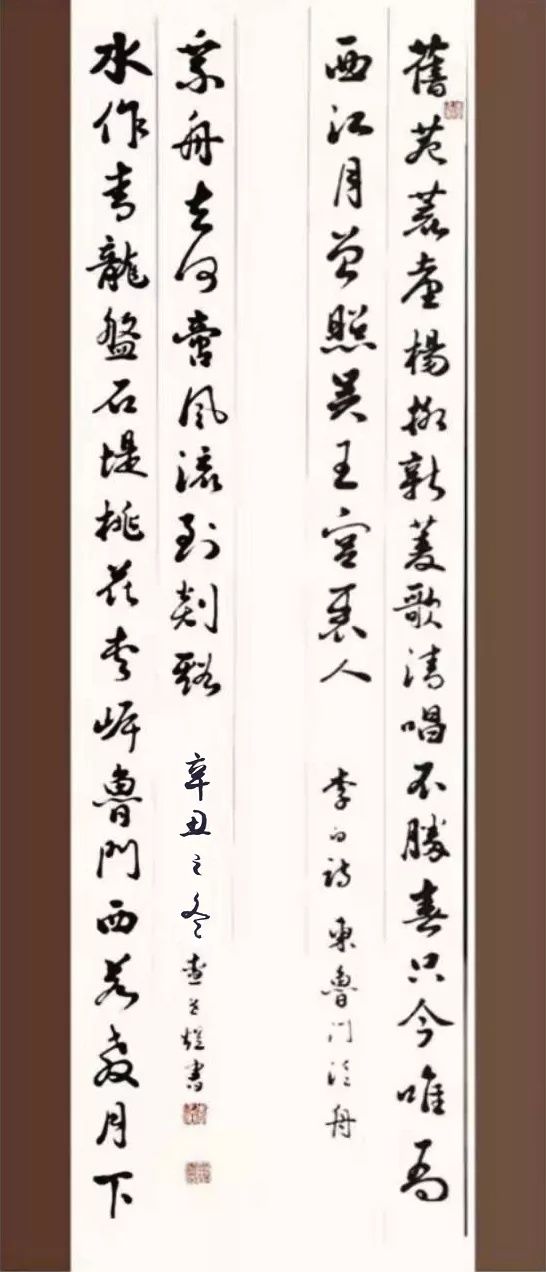 舊苑荒臺楊柳新菱歌清唱不勝春只今唯有
西江月曾照吳王宮裏人 李白詩 東魯門泛舟
水作青龍盤石堤桃花夾岸魯門西若教月下
乘舟去何啻風流到剡谿 辛丑之冬 書